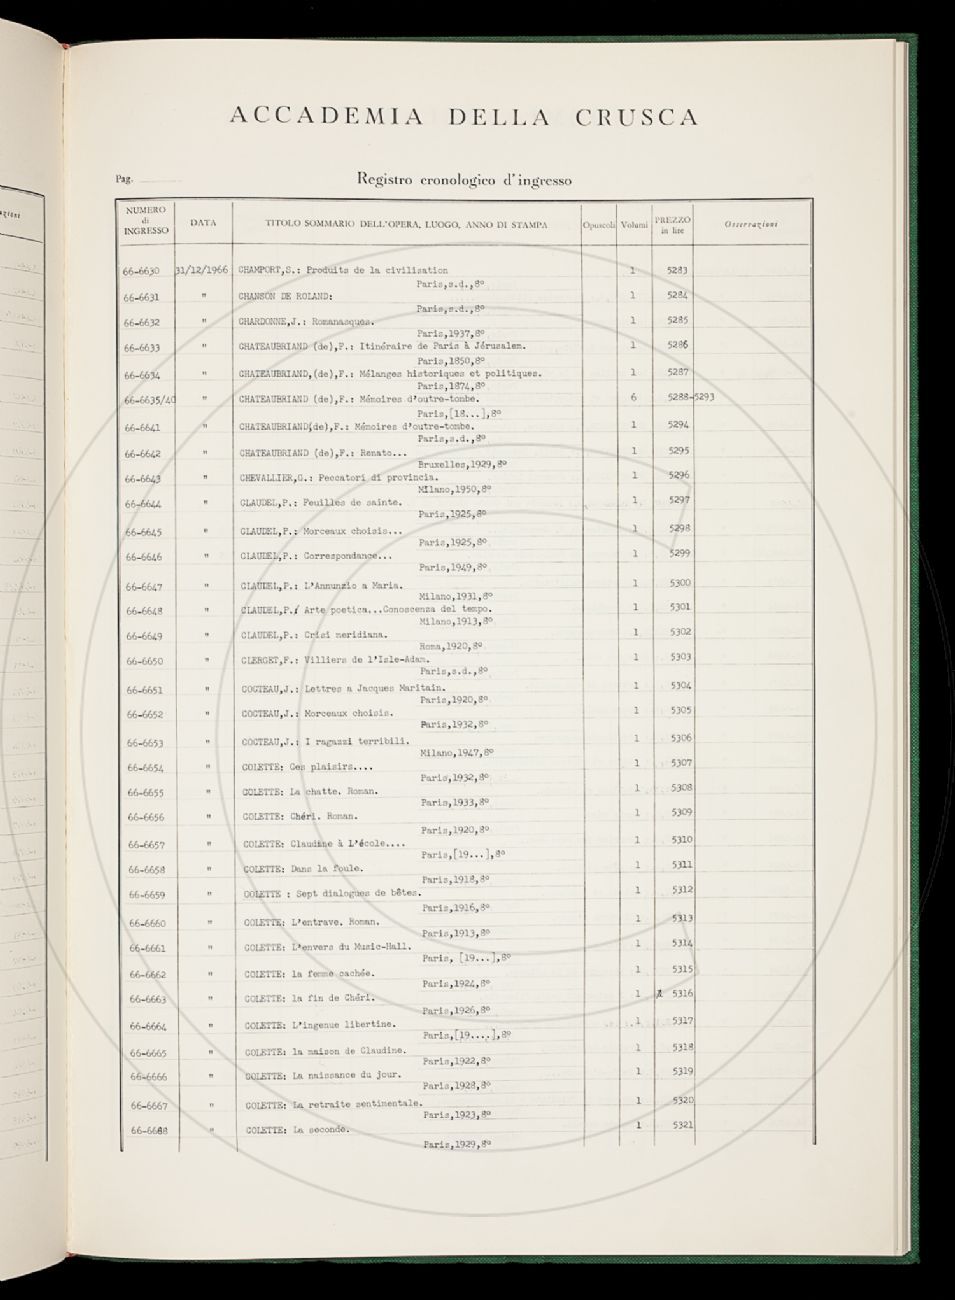 ACCADEMIA DELLA CRUSCA
Pag.
Registro cronologico d'ingresso
NUMERO di INGRESSO DATA TITOLO SOMMARIO DELL'OPERA, LUOGO, ANNO DI STAMPA Opuscoli Volumi PREZZO in lire Osservazioni
66-6630 31/12/1966 CHAMFORT,S.: Produits de la civilisation 1 5283
Paris,s.d.,8º
66-6631 " CHANSON DE ROLAND: 1 5284
Paris,s.d.,8º
66-6632 " CHARDONNE,J.: Romanesques. 1 5285
Paris,1937,8º
66-6633 " CHATEAUBRIAND (de),F.: Itinéraire de Paris à Jérusalem. 1 5286
Paris,1850,8º
66-6634 " CHATEAUBRIAND,(de),F.: Mélanges historiques et politiques. 1 5287
Paris,1874,8º
66-6635/40 " CHATEAUBRIAND (de),F.: Mémoires d'outre-tombe. 6 5288-5293
Paris,[18...],8º
66-6641 " CHATEAUBRIAND(de),F.: Mémoires d'outre-tombe. 1 5294
Paris,s.d.,8º
66-6642 " CHATEAUBRIAND (de),F.: Renato... 1 5295
Bruxelles,1929,8º
66-6643 " CHEVALLIER,G.: Peccatori di provincia. 1 5296
MIlano,1950,8º
66-6644 " CLAUDEL,P.: Feuilles de sainte. 1 5297
Paris,1925,8º
66-6645 " CLAUDEL,P.: Morceaux choisis... 1 5298
Paris,1925,8º
66-6646 " CLAUDEL,P.: Correspondance... 1 5299
Paris,1949,8º
66-6647 " CLAUDEL,P.: L'Annunzio a Maria. 1 5300
Milano,1931,8º
66-6648 " CLAUDEL,P./ Arte poetica...Conoscenza del tempo. 1 5301
Milano,1913,8º
66-6649 " CLAUDEL,P.: Crisi meridiana. 1 5302
Roma,1920,8º
66-6650 " CLERGET,F.: Villiers de l'Isle-Adam. 1 5303
Paris,s.d.,8º
66-6651 " COCTEAU,J.: Lettres a Jacques Maritain. 1 5304
Paris,1920,8º
66-6652 " COCTEAU,J.: Morceaux choisis. 1 5305
Paris,1932,8º
66-6653 " COCTEAU,J.: I ragazzi terribili. 1 5306
Milano,1947,8º
66-6654 " COLETTE: Ces plaisirs.... 1 5307
Paris,1932,8º
66-6655 " COLETTE: La chatte. Roman. 1 5308
Paris,1933,8º
66-6656 " COLETTE: Chéri. Roman. 1 5309
Paris,1920,8º
66-6657 " COLETTE: Claudine à L'école.... 1 5310
Paris,[19...],8º
66-6658 " COLETTE: Dans la foule. 1 5311
Paris,1918,8º
66-6659 " COLETTE : Sept dialogues de bêtes. 1 5312
Paris,1916,8º
66-6660 " COLETTE: L'entrave. Roman. 1 5313
Paris,1913,8º
66-6661 " COLETTE: L'envers du Music-Hall. 1 5314
Paris, [19...],8º
66-6662 " COLETTE: la femme cachée. 1 5315
Paris,1924,8º
66-6663 " COLETTE: la fin de Chéri. 1 5316
Paris,1926,8º
66-6664 " COLETTE: L'ingenue libertine. 1 5317
Paris,[19....],8º
66-6665 " COLETTE: la maison de Claudine. 1 5318
Paris,1922,8º
66-6666 " COLETTE: La naissance du jour. 1 5319
Paris,1928,8º
66-6667 " COLETTE: La retraite sentimentale. 1 5320
Paris,1923,8º
66-6668 " COLETTE: La seconde. 1 5321
Paris,1929,8º